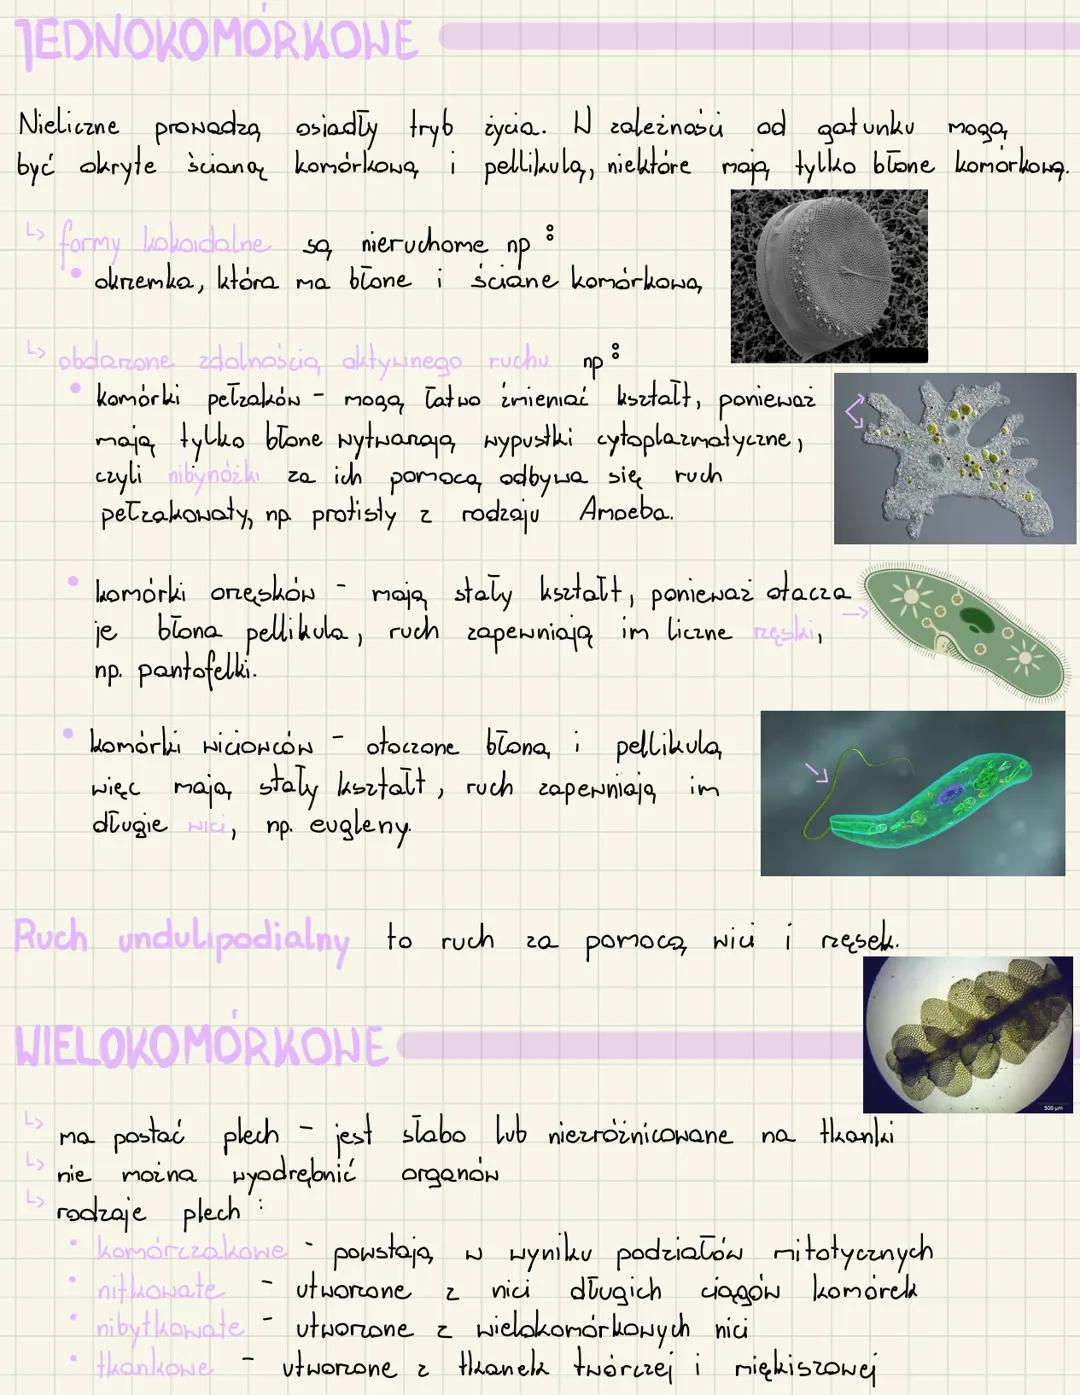 JEDNOKOMÓRKOWE
Nieliczne prowadzą osiadły tryb życia. W zależności od gatunku mogą
być okryte ścianą komórkową i pellikulą, niektóre mają tylko błone komórkową.
↳ formy kokoidalne są nieruchome np :
• okrzemka, która ma błone i ściane komórkową
↳ obdarzone zdolnością aktywnego ruchu np :
• komórki pełzaków - mogą łatwo zmieniać kształt, ponieważ
mają tylko błone wytwarzają wypustki cytoplazmatyczne,
czyli nibynóżki za ich pomocą odbywa się ruch
pełzakowaty, np. protisty z rodzaju Amoeba.
• komórki orzęsków - mają stały kształt, ponieważ otacza
je błona pellikula, ruch zapewniają im liczne rzęski,
np. pantofelki.
• komórki wiciowców - otoczone błoną i pellikulą
więc mają stały kształt, ruch zapewniają im
długie wici, np. eugleny.
Ruch undulipodialny to ruch za pomocą wici i rzęsek.
WIELOKOMÓRKOWE
500 µm
↳ ma postać plech - jest słabo lub niezróżnicowane na tkanki
↳ nie można wyodrębnić organów
↳ rodzaje plech :
• komórczakowe - powstają w wyniku podziałów mitotycznych
• nitkowate - utworzone z nici długich ciągów komórek
• nibytkowate - utworzone z wielokomórkowych nici
• tkankowe - utworzone z tkanek twórczej i miękiszowej